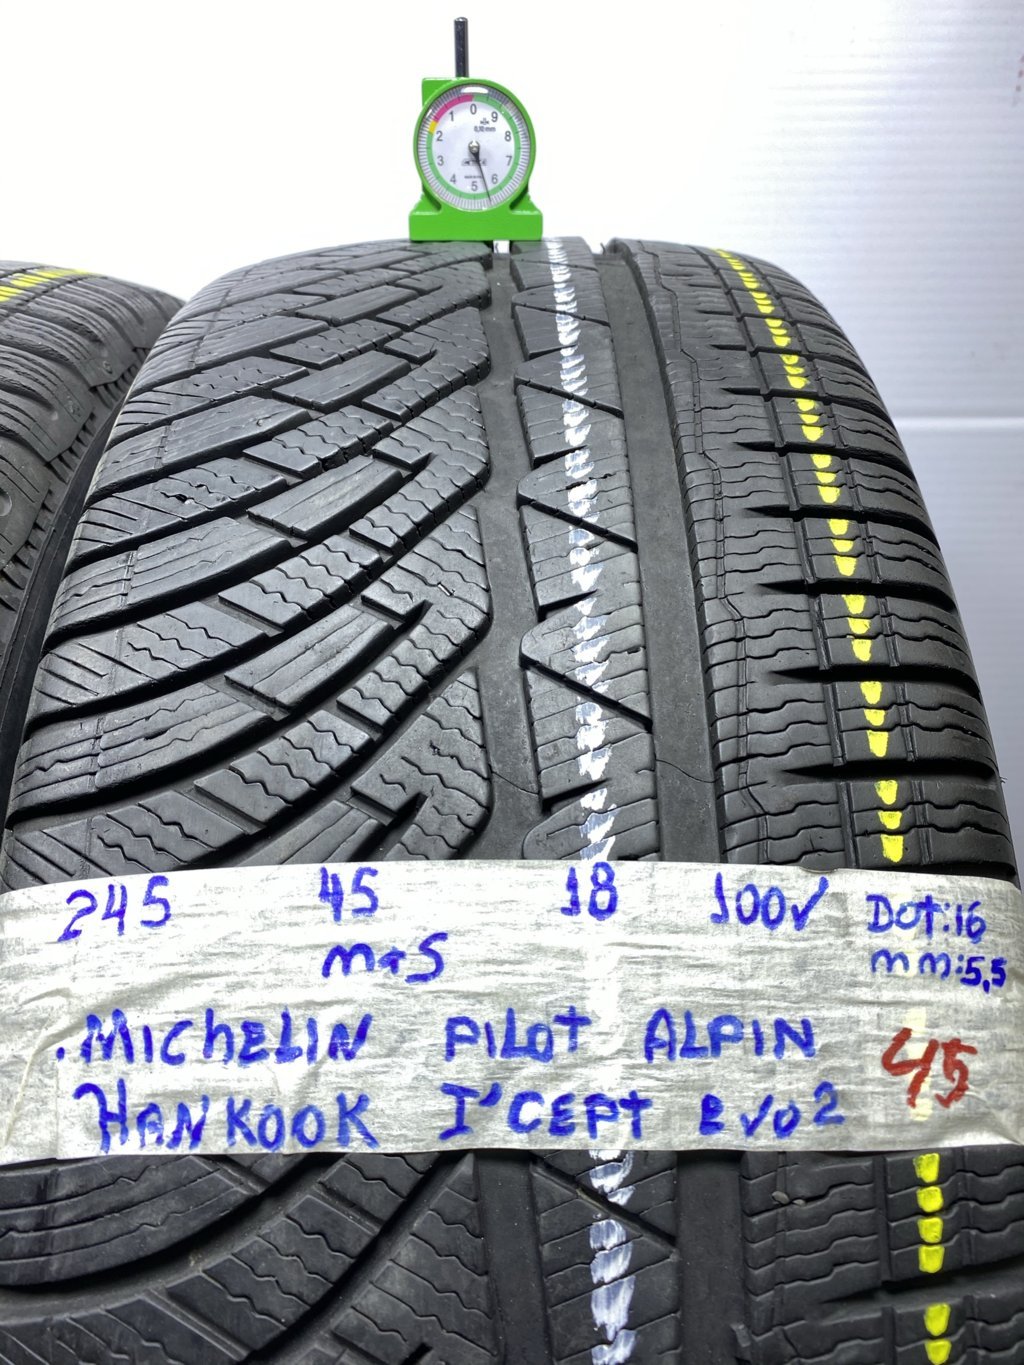 0
1 9
0,10mm
2 8
3 7
4 6
5
245 45 18 100V DOT:16
M+S mm:5,5
.MICHELIN PILOT ALPIN 45
HANKOOK I'CEPT EVO2